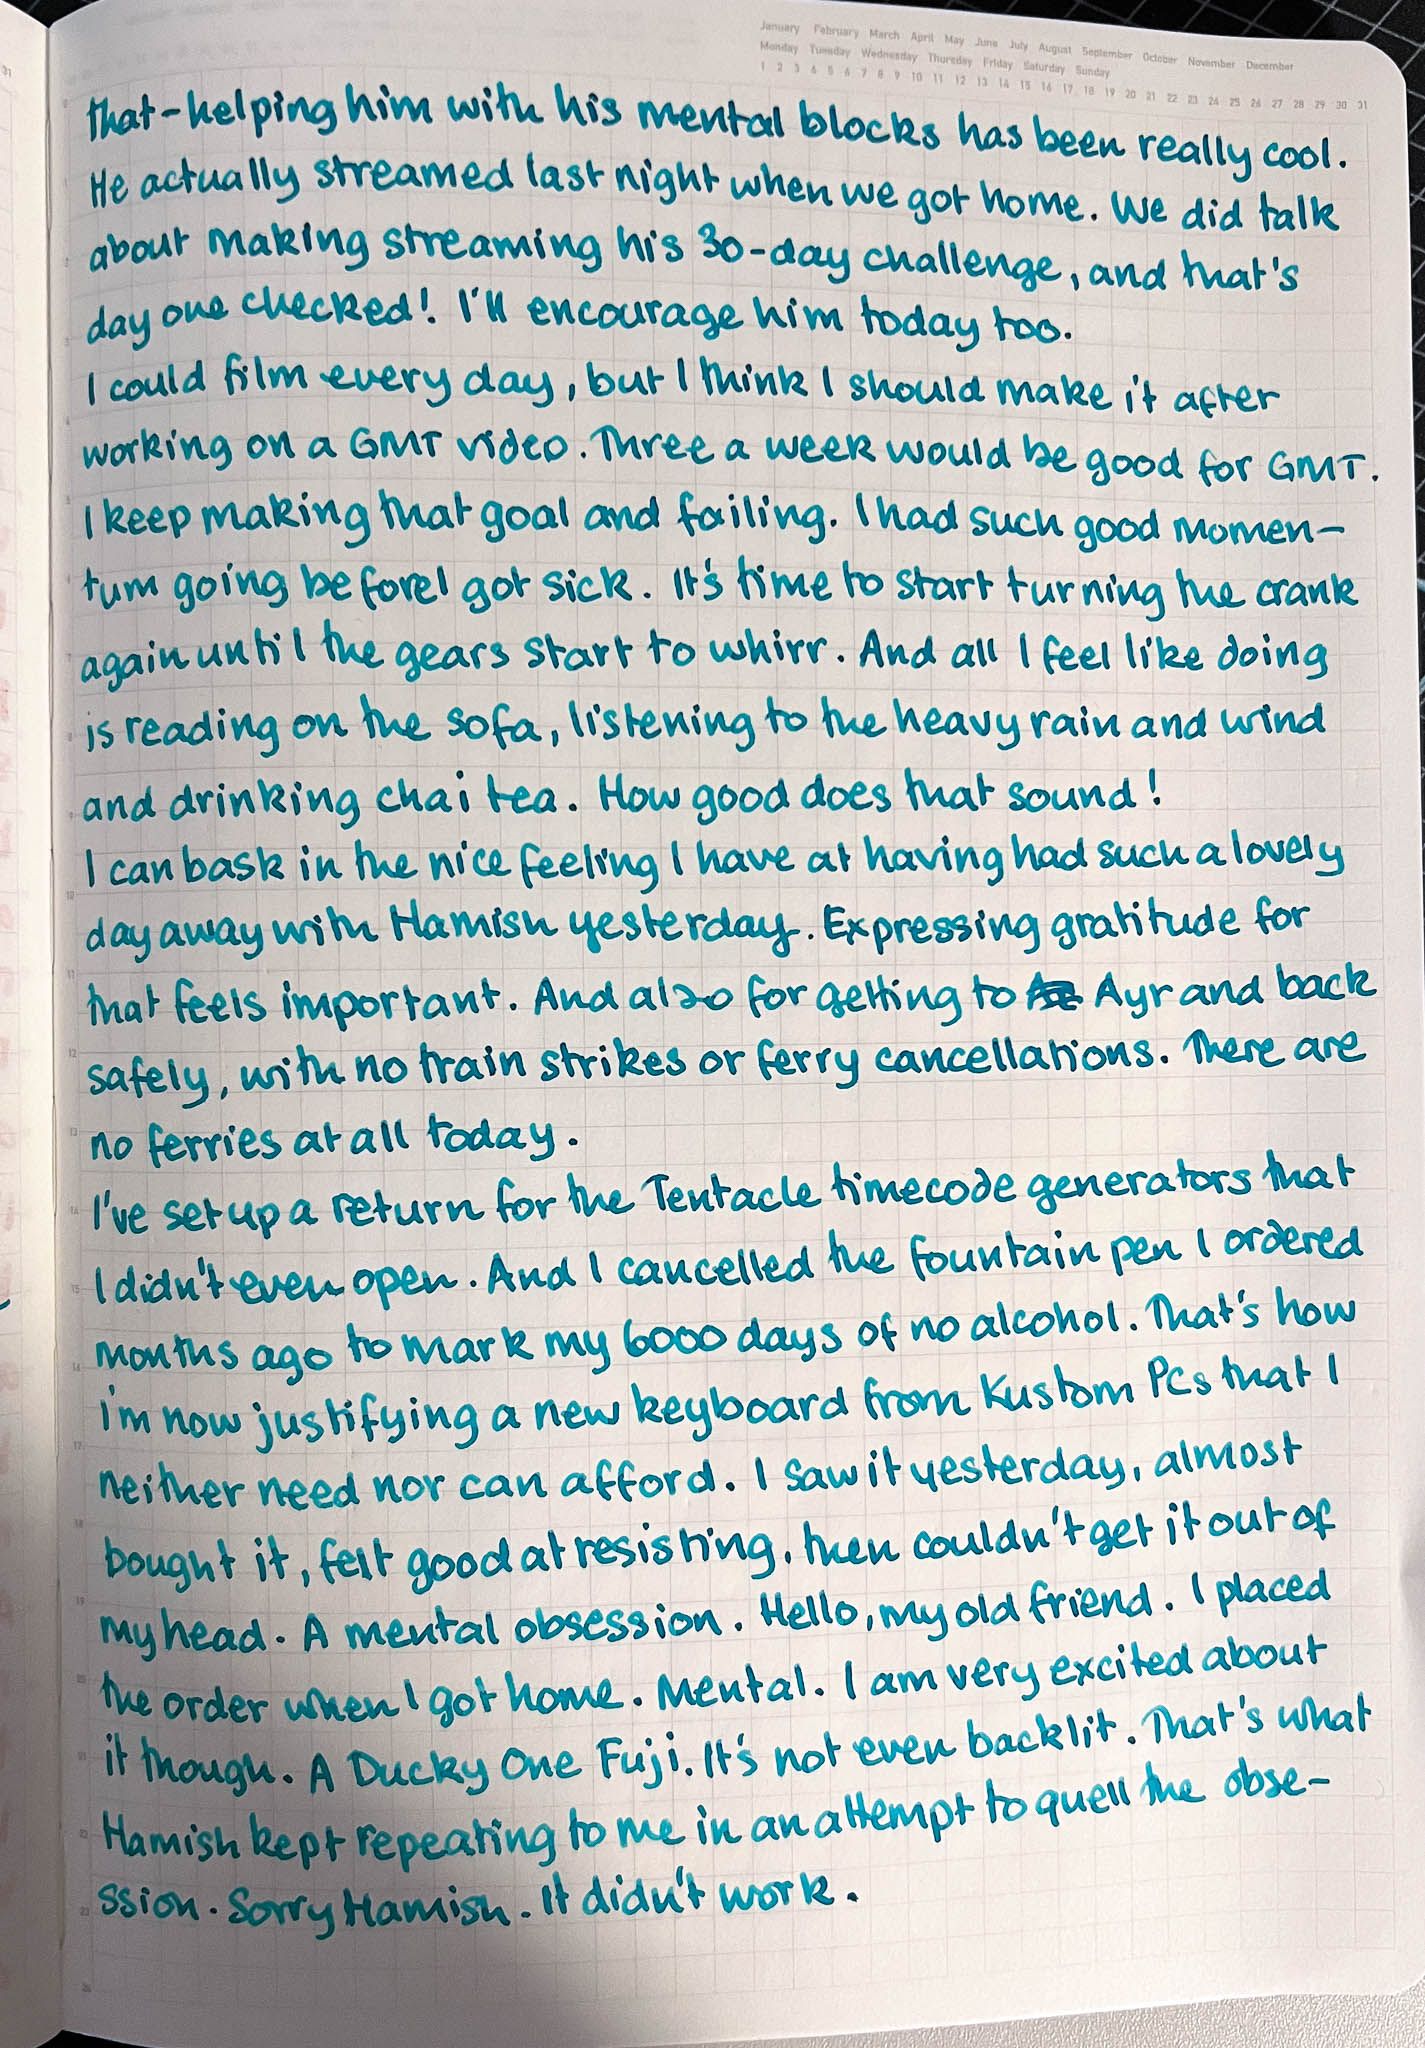 January February March April May June July August September October November December
Monday Tuesday Wednesday Thursday Friday Saturday Sunday
1 2 3 4 5 6 7 8 9 10 11 12 13 14 15 16 17 18 19 20 21 22 23 24 25 26 27 28 29 30 31
that-helping him with his mental blocks has been really cool.
He actually streamed last night when we got home. We did talk
about making streaming his 30-day challenge, and that's
day one checked! I'll encourage him today too.
I could film every day, but I think I should make it after
working on a GMT video. Three a week would be good for GMT.
I keep making that goal and failing. I had such good momen-
tum going before I got sick. It's time to start turning the crank
again until the gears start to whirr. And all I feel like doing
is reading on the sofa, listening to the heavy rain and wind
and drinking chai tea. How good does that sound!
I can bask in the nice feeling I have at having had such a lovely
day away with Hamish yesterday. Expressing gratitude for
that feels important. And also for getting to Ayr and back
safely, with no train strikes or ferry cancellations. There are
no ferries at all today.
I've set up a return for the Tentacle timecode generators that
I didn't even open. And I cancelled the fountain pen I ordered
months ago to mark my 6000 days of no alcohol. That's how
i'm now justifying a new keyboard from Kustom PCs that I
neither need nor can afford. I saw it yesterday, almost
bought it, felt good at resisting, then couldn't get it out of
my head. A mental obsession. Hello, my old friend. I placed
the order when I got home. Mental. I am very excited about
it though. A Ducky One Fuji. It's not even backlit. That's what
Hamish kept repeating to me in an attempt to quell the obse-
ssion. Sorry Hamish. It didn't work.